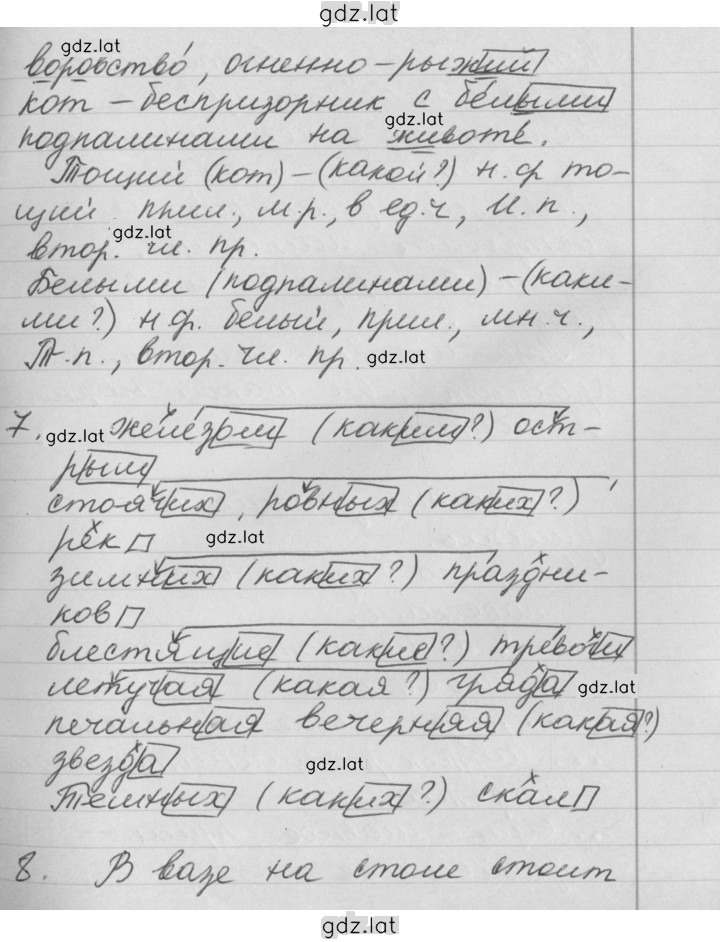 gdz.lat
gdz.lat
воровство, огненно-рыжий
кот - беспризорник с белыми
gdz.lat
подпалинами на животе.
Тощий (кот) - (какой?) н.ф то-
щий прил., м.р., в ед.ч, И.п.,
gdz.lat
втор. чл. пр.
Белыми (подпалинами) - (каки-
ми?) н.ф. белый, прил., мн.ч.,
Т.п., втор. чл. пр. gdz.lat
7. gdz.lat железом (каким?) ост-
рым
стоячих, ровных (каких?)
рек gdz.lat
зимних (каких?) праздни-
ков
блестящие (какие?) тревоги
летучая (какая?) гряда gdz.lat
печальная вечерняя (какая?)
звезда
gdz.lat
Темных (каких?) скал
8. В вазе на столе стоит
gdz.lat